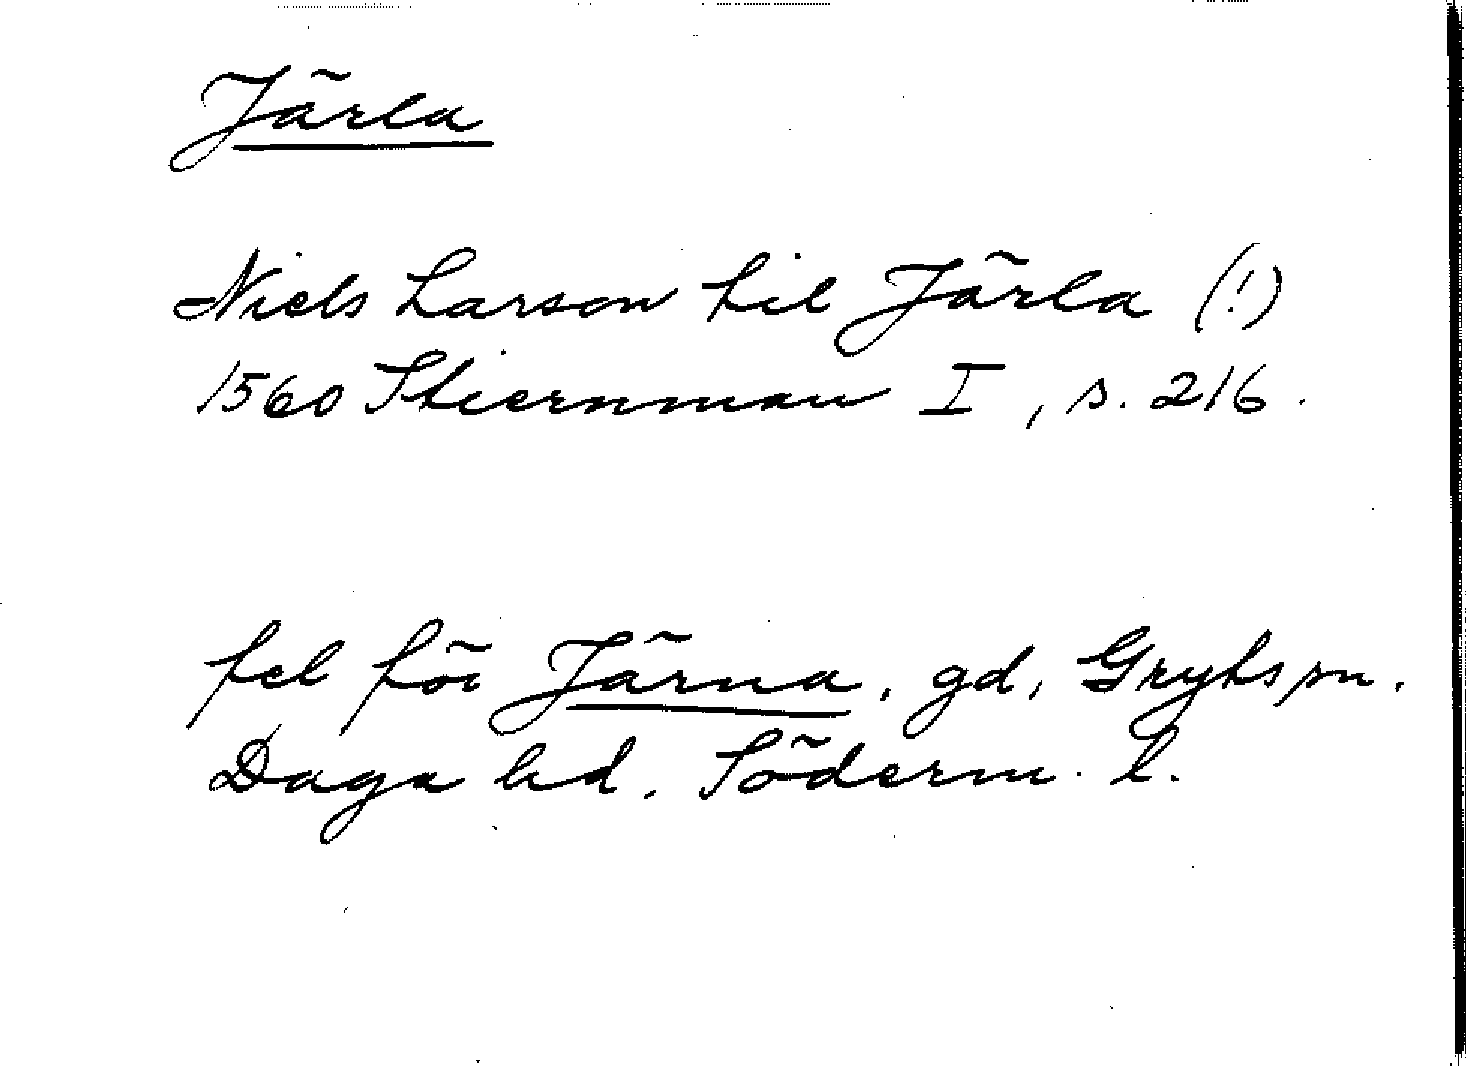 Järla
Niels Larson til Järla (!)
1560 Stiernman I, s. 216.
fel för Järna, gd, Gryts sn.
Daga hd. Söderm. l.